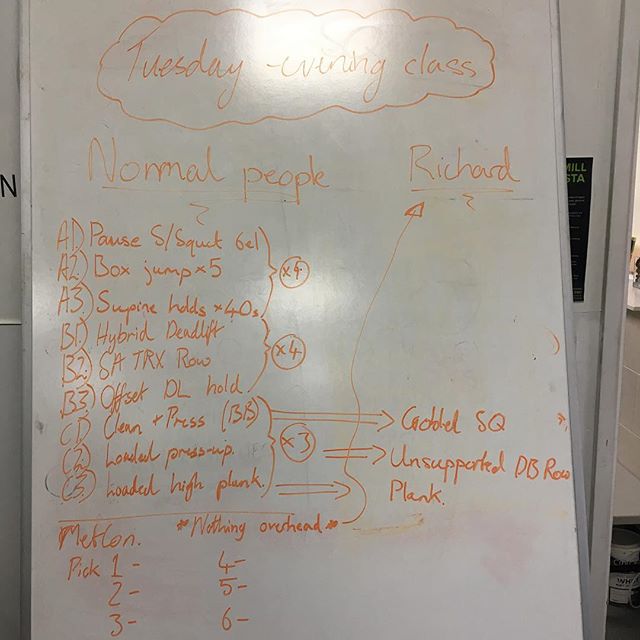 Tuesday evening class
Normal people
Richard
A1) Pause S/Squat 6e1
A2) Box jump x5
A3) Supine holds x40s
x4
B1) Hybrid Deadlift
B2) SA TRX Row
B3) Offset DL hold
x4
C1) Clean + Press (BB)
Gobbled SQ
C2) Loaded press-up.
x3
Unsupported DB Row
C3) Loaded high plank.
Plank.
*Nothing overhead*
MetCon.
Pick 1- 4-
2- 5-
3- 6-
N
MILL